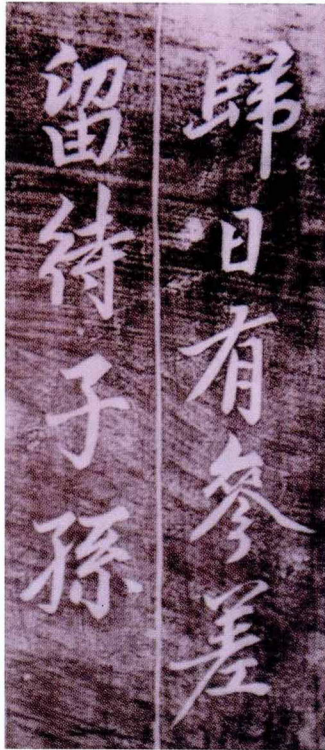 歸日有參差
留待子孫